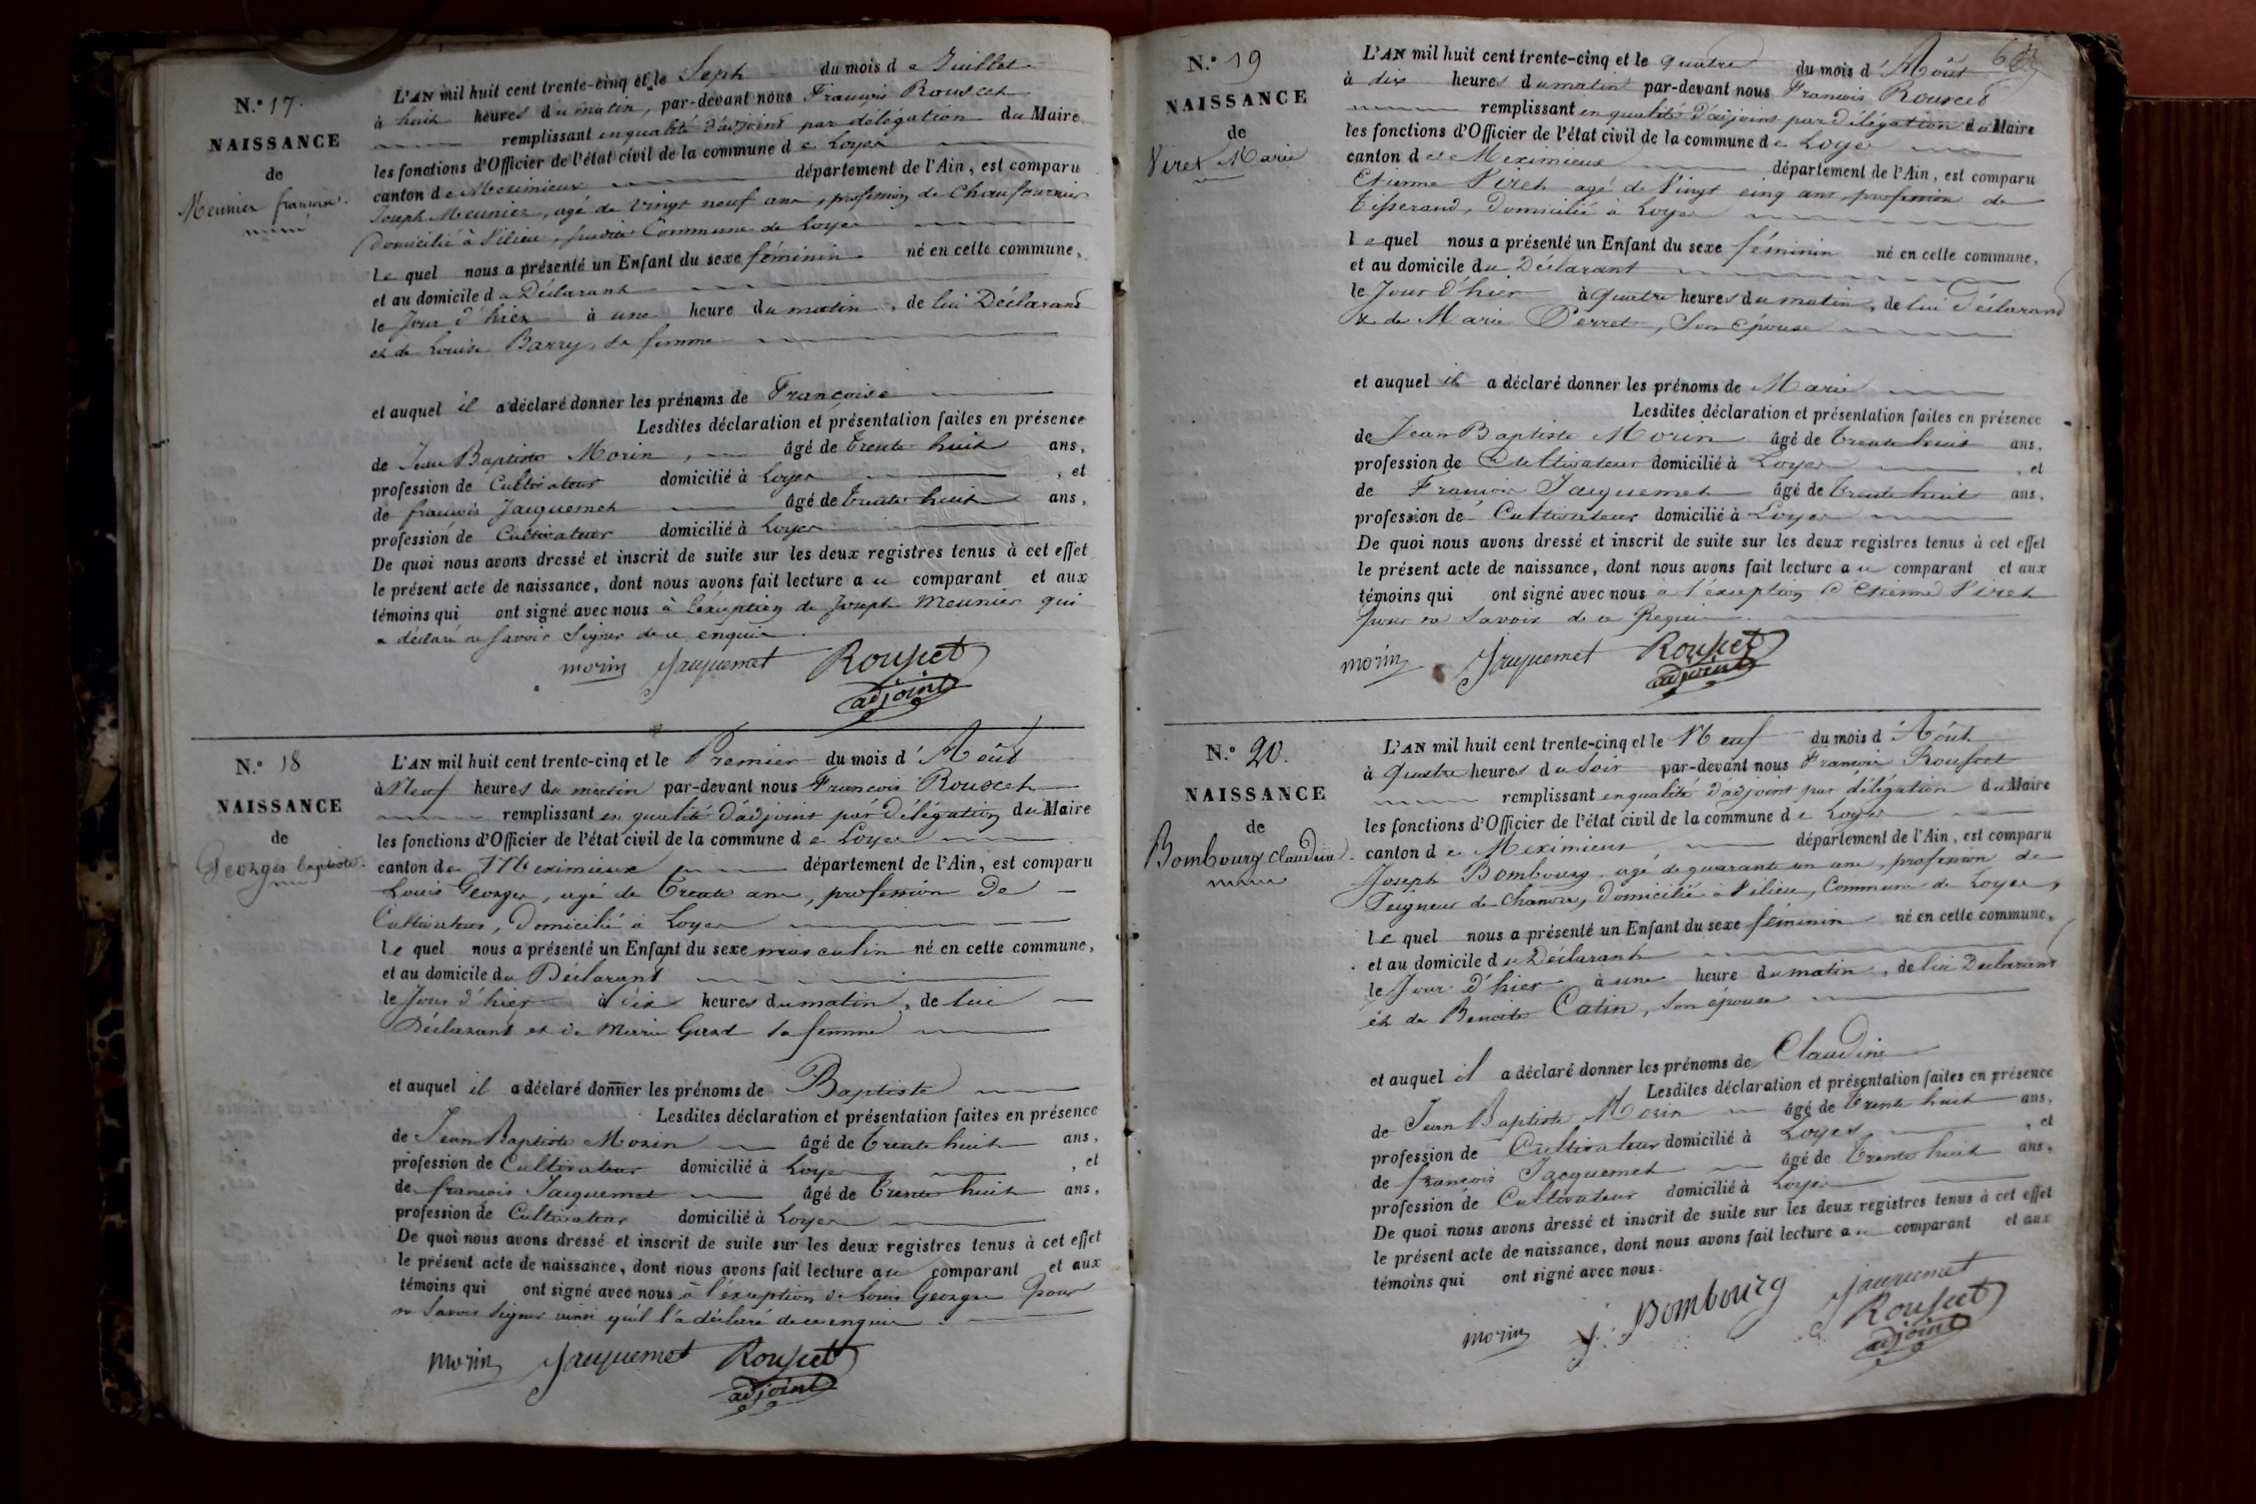 N.° 17.
NAISSANCE
de
Meunier francoise.
L'AN mil huit cent trente-cinq et le Sept du mois de Juillet
à huit heures du matin, par-devant nous François Rousset
remplissant en qualité d'adjoint par délégation du Maire
les fonctions d'Officier de l'état civil de la commune de Loyes
canton de Meximieux département de l'Ain, est comparu
Joseph Meunier, agé de vingt neuf ans, profession de Chaufournier
domicilié à Vilieu, Commune de Loyes
lequel nous a présenté un Enfant du sexe féminin né en cette commune,
et au domicile du Déclarant
le Jour d'hier à une heure du matin, de lui Déclarant
et de Louise Barry, sa femme
et auquel il a déclaré donner les prénoms de Francoise
Lesdites déclaration et présentation faites en présence
de Jean Baptiste Morin, âgé de trente huit ans,
profession de Cultivateur domicilié à Loyes, et
de francois Jacquemet âgé de trente huit ans,
profession de Cultivateur domicilié à Loyes
De quoi nous avons dressé et inscrit de suite sur les deux registres tenus à cet effet
le présent acte de naissance, dont nous avons fait lecture au comparant et aux
témoins qui ont signé avec nous à l'éxception de Joseph Meunier qui
a déclaré ne savoir signer de ce enquis
morin Jacquemet Rousset
adjoint
N.° 18
NAISSANCE
de
Georges baptiste.
L'AN mil huit cent trente-cinq et le Premier du mois d'Août
à Neuf heures du matin par-devant nous Francois Rousset
remplissant en qualité d'adjoint par délégation du Maire
les fonctions d'Officier de l'état civil de la commune de Loyes
canton de Meximieux département de l'Ain, est comparu
Louis Georges, agé de trente ans, profession de
Cultivateur, domicilié à Loyes
lequel nous a présenté un Enfant du sexe masculin né en cette commune,
et au domicile du Déclarant
le Jour d'hier à dix heures du matin, de lui
Déclarant et de Marie sa femme
et auquel il a déclaré donner les prénoms de Baptiste
Lesdites déclaration et présentation faites en présence
de Jean Baptiste Morin âgé de trente huit ans,
profession de Cultivateur domicilié à Loyes, et
de francois Jacquemet âgé de trente huit ans,
profession de Cultivateur domicilié à Loyes
De quoi nous avons dressé et inscrit de suite sur les deux registres tenus à cet effet
le présent acte de naissance, dont nous avons fait lecture au comparant et aux
témoins qui ont signé avec nous à l'éxception de Louis Georges pour
ne savoir signer ainsi qu'il l'a déclaré de ce enquis.
morin Jacquemet Rousset
adjoint
N.° 19
NAISSANCE
de
Viret Marie
L'AN mil huit cent trente-cinq et le quatre du mois d'Août
à dix heures du matin par-devant nous Francois Rousset
remplissant en qualité d'adjoint par délégation du Maire
les fonctions d'Officier de l'état civil de la commune de Loyes
canton de Meximieux département de l'Ain, est comparu
Etienne Viret agé de Vingt cinq ans, profession de
tisserand, domicilié à Loyes
lequel nous a présenté un Enfant du sexe féminin né en cette commune,
et au domicile du Déclarant
le Jour d'hier à quatre heures du matin, de lui Déclarant
& de Marie Perret, son épouse
et auquel il a déclaré donner les prénoms de Marie
Lesdites déclaration et présentation faites en présence
de Jean Baptiste Morin âgé de trente huit ans,
profession de Cultivateur domicilié à Loyes, et
de Francois Jacquemet âgé de trente huit ans,
profession de Cultivateur domicilié à Loyes
De quoi nous avons dressé et inscrit de suite sur les deux registres tenus à cet effet
le présent acte de naissance, dont nous avons fait lecture au comparant et aux
témoins qui ont signé avec nous à l'éxception d'Etienne Viret
pour ne savoir de ce Requis.
morin Jacquemet Rousset
adjoint
N.° 20.
NAISSANCE
de
Bombourg Claudine.
L'AN mil huit cent trente-cinq et le Neuf du mois d'Août
à Quatre heures du soir par-devant nous Francois Rousset
remplissant en qualité d'adjoint par délégation du Maire
les fonctions d'Officier de l'état civil de la commune de Loyes
canton de Meximieux, département de l'Ain, est comparu
Joseph Bombourg agé de quarante un ans, profession de
Peigneur de Chanvre, domicilié à Vilieu, Commune de Loyes,
lequel nous a présenté un Enfant du sexe féminin né en cette commune,
et au domicile du Déclarant
le Jour d'hier à une heure du matin, de lui Déclarant
et de Benoite Catin, son épouse
et auquel il a déclaré donner les prénoms de Claudine
Lesdites déclaration et présentation faites en présence
de Jean Baptiste Morin âgé de trente huit ans,
profession de Cultivateur domicilié à Loyes, et
de francois Jacquemet âgé de trente huit ans,
profession de Cultivateur domicilié à Loyes
De quoi nous avons dressé et inscrit de suite sur les deux registres tenus à cet effet
le présent acte de naissance, dont nous avons fait lecture au comparant et aux
témoins qui ont signé avec nous.
morin J. Bombourg Jacquemet
Rousset
adjoint